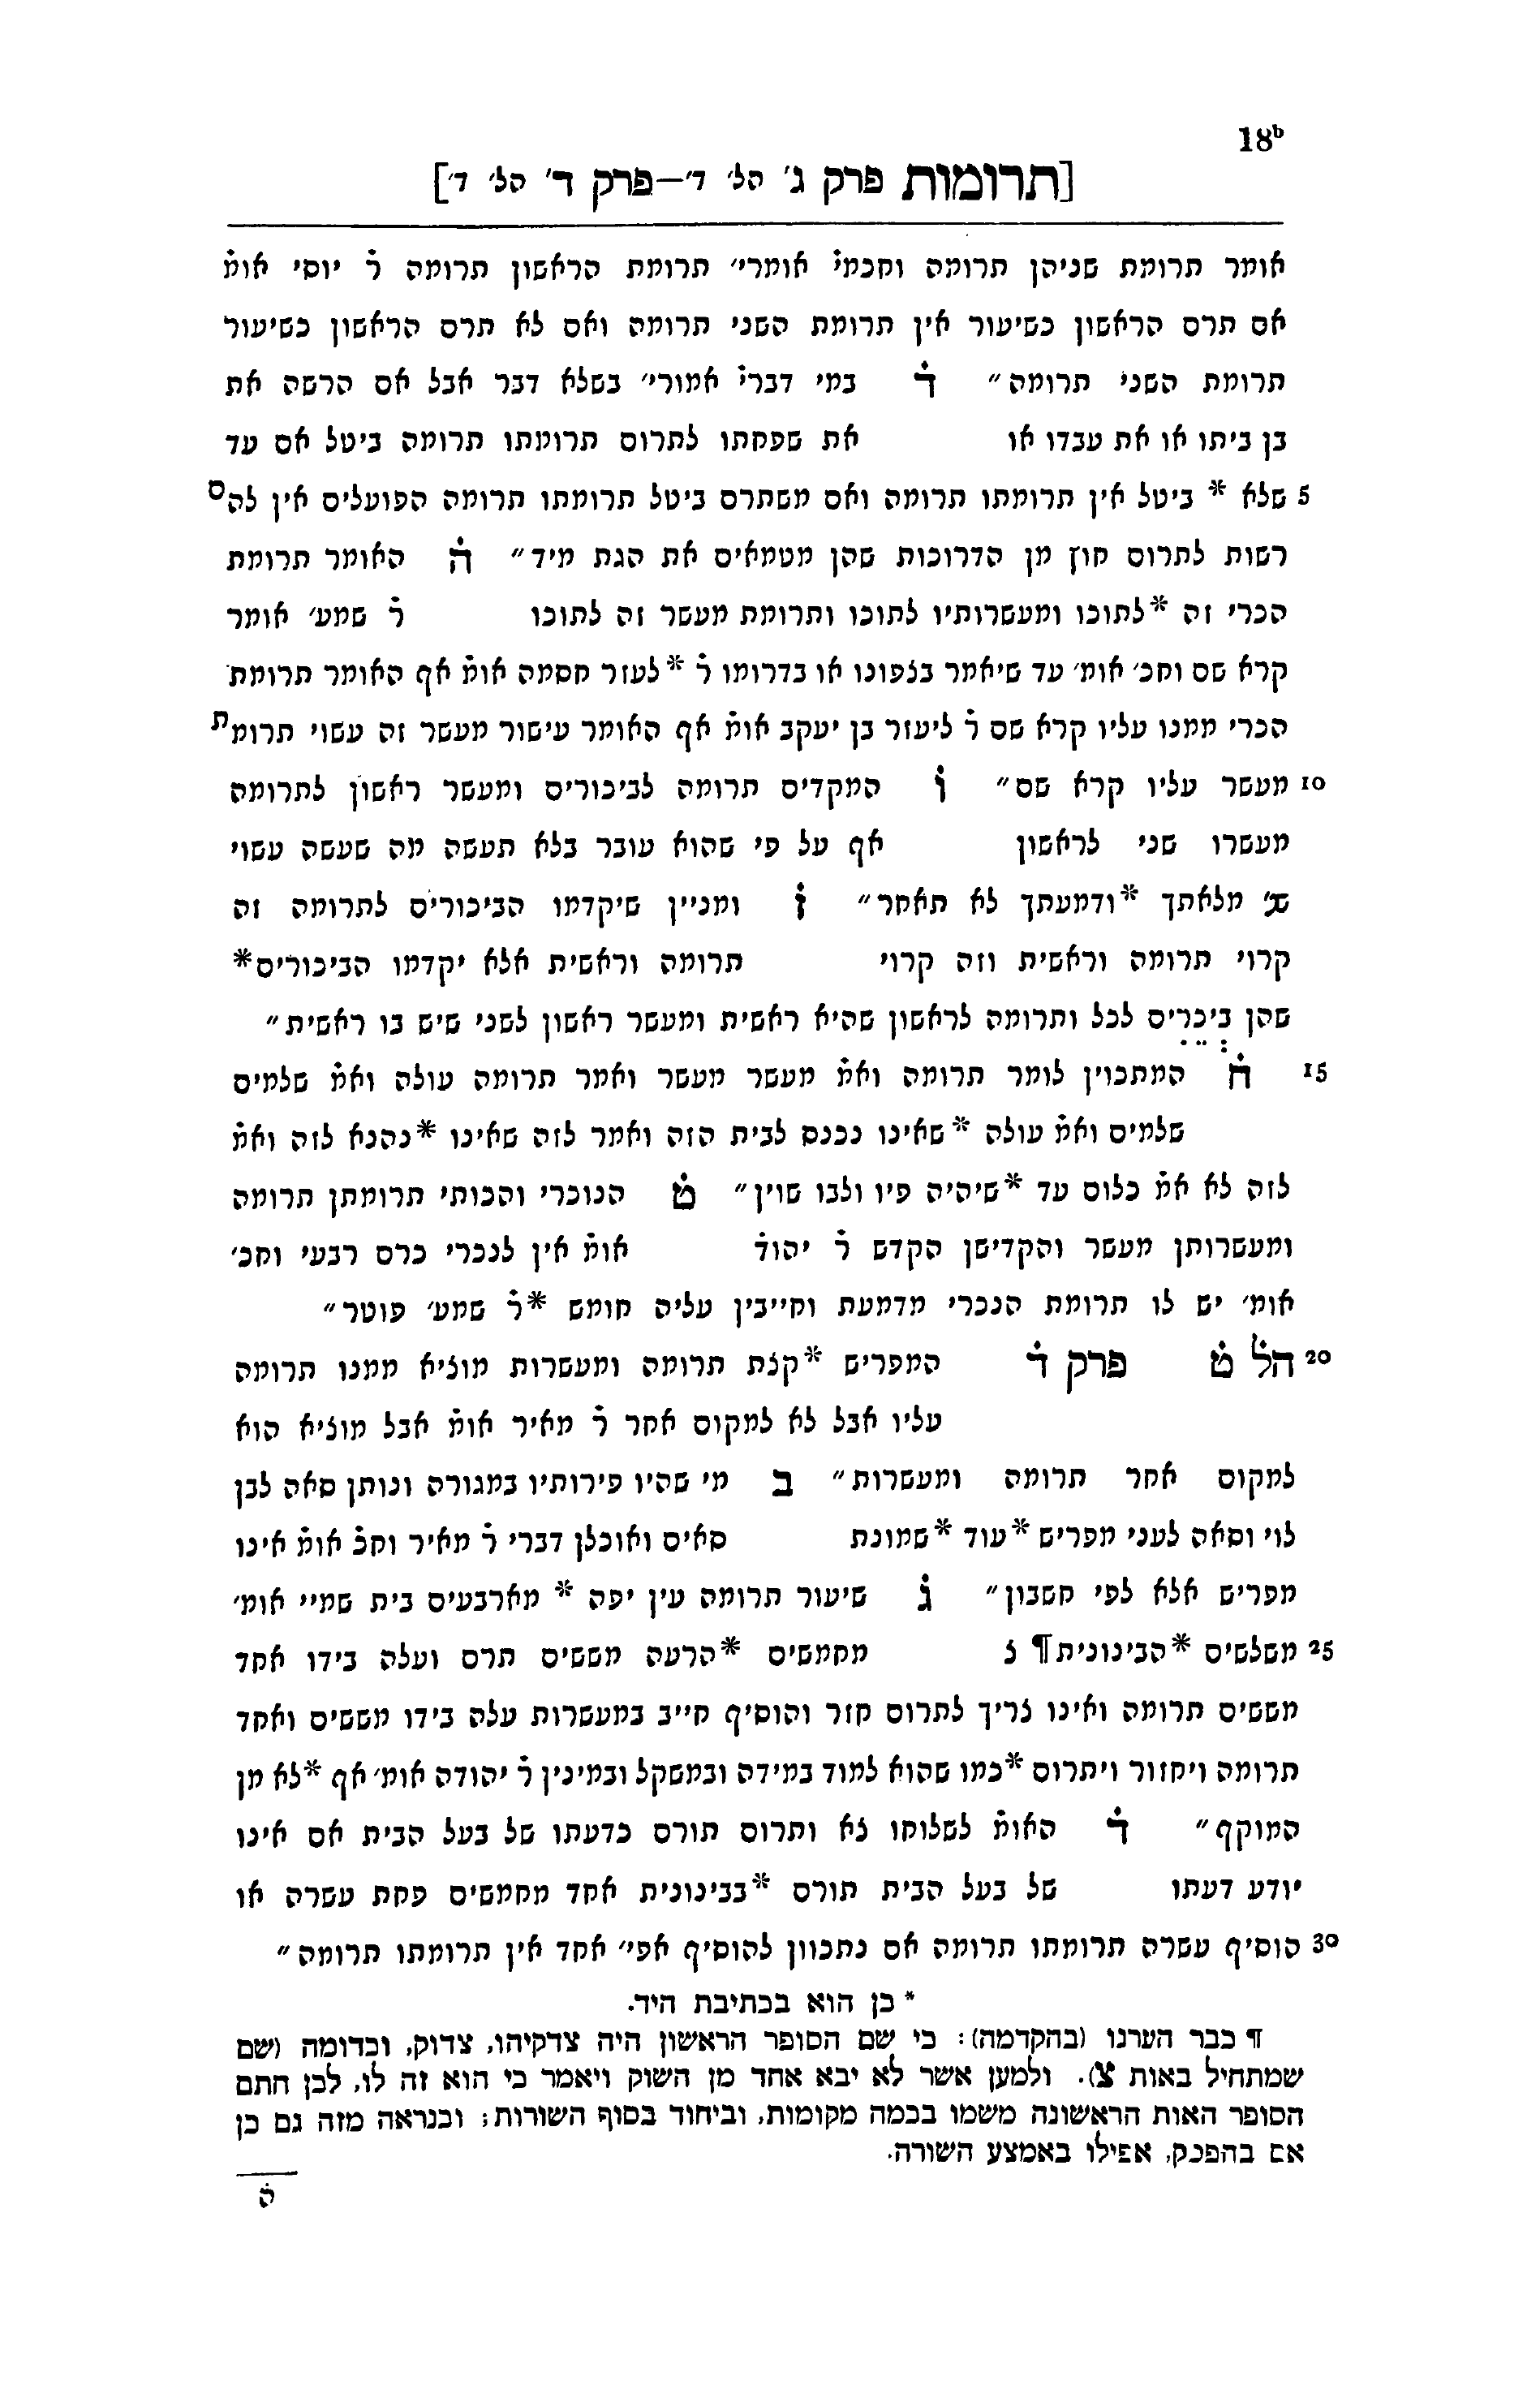 18ᵇ
[תרומות פרק ג׳ הל׳ ד׳—פרק ד׳ הל׳ ד׳]
אומר תרומת שניהן תרומה וחכמי׳ אומרי׳ תרומת הראשון תרומה ר̇ יוסי אומ̇
אם תרם הראשון כשיעור אין תרומת השני תרומה ואם לא תרם הראשון כשיעור
תרומת השני תרומה״ ד̇ במי דברי̇ אמורי׳ בשלא דבר אבל אם הרשה את
בן ביתו או את עבדו או את שפחתו לתרום תרומתו תרומה ביטל אם עד
5 שלא * ביטל אין תרומתו תרומה ואם משתרם ביטל תרומתו תרומה הפועלים אין להם
רשות לתרום חוץ מן הדרוכות שהן מטמאים את הגת מיד״ ה̇ האומר תרומת
הכרי זה *לתוכו ומעשרותיו לתוכו ותרומת מעשר זה לתוכו ר̇ שמע׳ אומר
קרא שם וחכ׳ אומ׳ עד שיאמר בצפונו או בדרומו ר̇ *לעזר חסמה אומ̇ אף האומר תרומת
הכרי ממנו עליו קרא שם ר̇ ליעזר בן יעקב אומ̇ אף האומר עישור מעשר זה עשוי תרומת
10 מעשר עליו קרא שם״ ו̇ המקדים תרומה לביכורים ומעשר ראשון לתרומה
מעשרו שני לראשון אף על פי שהוא עובר בלא תעשה מה שעשה עשוי
שנ׳ מלאתך *ודמעתך לא תאחר״ ז̇ ומניין שיקדמו הביכורים לתרומה זה
קרוי תרומה וראשית וזה קרוי תרומה וראשית אלא יקדמו הביכורים*
שהן בְּיכֵרִים לכל ותרומה לראשון שהיא ראשית ומעשר ראשון לשני שיש בו ראשית״
15 ח̇ המתכוין לומר תרומה ואמ̇ מעשר מעשר ואמר תרומה עולה ואמ̇ שלמים
שלמים ואמ̇ עולה *שאינו נכנס לבית הזה ואמר לזה שאינו *נהנא לזה ואמ̇
לזה לא אמ̇ כלום עד *שיהיה פיו ולבו שוין״ ט̇ הנוכרי והכותי תרומתן תרומה
ומעשרותן מעשר והקדישן הקדש ר̇ יהוד̇ אומ̇ אין לנכרי כרם רבעי וחכ׳
אומ׳ יש לו תרומת הנכרי מדמעת וחייבין עליה חומש *ר̇ שמע׳ פוטר״
20 הל̇ ט̇ פרק ד̇ המפריש *קצת תרומה ומעשרות מוציא ממנו תרומה
עליו אבל לא למקום אחר ר̇ מאיר אומ̇ אבל מוציא הוא
למקום אחר תרומה ומעשרות״ ב מי שהיו פירותיו במגורה ונותן סאה לבן
לוי וסאה לעני מפריש *עוד *שמונת סאים ואוכלן דברי ר̇ מאיר וחכ̇ אומ̇ אינו
מפריש אלא לפי חשבון״ ג̇ שיעור תרומה עין יפה * מארבעים בית שמיי אומ׳
25 משלשים *הבינונית¶ צ מחמשים *הרעה מששים תרם ועלה בידו אחד
מששים תרומה ואינו צריך לתרום חזר והוסיף חייב במעשרות עלה בידו מששים ואחד
תרומה ויחזור ויתרום *כמו שהוא למוד במידה ובמשקל ובמינין ר̇ יהודה אומ׳ אף *לא מן
המוקף״ ד̇ האומ̇ לשלוחו צא ותרום תורם כדעתו של בעל הבית אם אינו
יודע דעתו של בעל הבית תורם *בבינונית אחד מחמשים פחת עשרה או
30 הוסיף עשרה תרומתו תרומה אם נתכוון להוסיף אפי׳ אחד אין תרומתו תרומה״
* כן הוא בכתיבת היד.
¶ כבר הערנו (בהקדמה): כי שם הסופר הראשון היה צדקיהו, צדוק, וכדומה (שם
שמתחיל באות צ). ולמען אשר לא יבא אחד מן השוק ויאמר כי הוא זה לו, לכן חתם
הסופר האות הראשונה משמו בכמה מקומות, וביחוד בסוף השורות; ובנראה מזה גם כן
אם בהפסק, אפילו באמצע השורה.
ה̇